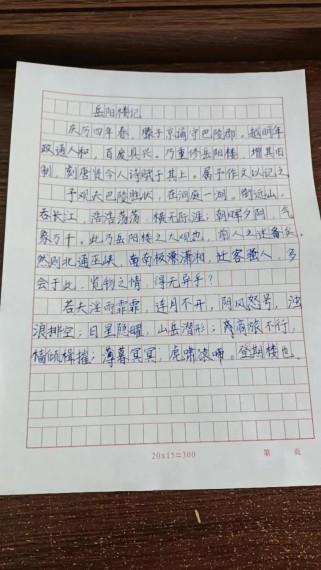 岳阳楼记
庆历四年春，滕子京谪守巴陵郡。越明年
政通人和，百废具兴。乃重修岳阳楼，增其旧
制，刻唐贤今人诗赋于其上。属予作文以记之
予观夫巴陵胜状，在洞庭一湖。衔远山，
吞长江，浩浩荡荡，横无际涯；朝晖夕阴，气
象万千。此乃岳阳楼之大观也，前人之述备矣。
然则北通巫峡，南极潇湘，迁客骚人，多
会于此，览物之情，得无异乎？
若夫淫雨霏霏，连月不开，阴风怒号，浊
浪排空；日星隐曜，山岳潜形；商旅不行，
樯倾楫摧；薄暮冥冥，虎啸猿啼。登斯楼也
20x15=300
第 页